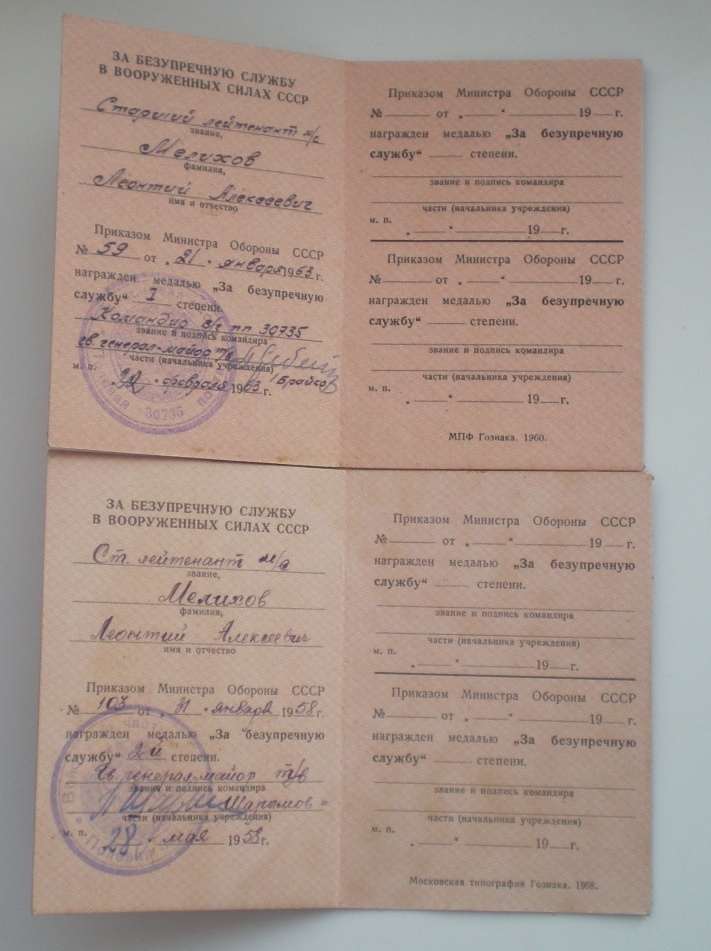 ЗА БЕЗУПРЕЧНУЮ СЛУЖБУ
В ВООРУЖЕННЫХ СИЛАХ СССР
Старший лейтенант м/с
звание,
Мелихов
фамилия,
Леонтий Алексеевич
имя и отчество
Приказом Министра Обороны СССР
№ 59 от „21“ января 1963 г.
награжден медалью „За безупречную
службу“ I степени.
Командир в/ч пп 30735
звание и подпись командира
гв генерал-майор т/в
части (начальника учреждения)
м. п. февраля 1963
30735
Приказом Министра Обороны СССР
№ от „ “ 19 г.
награжден медалью „За безупречную
службу“ степени.
звание и подпись командира
части (начальника учреждения)
м. п.
„ “ 19 г.
Приказом Министра Обороны СССР
№ от „ “ 19 г.
награжден медалью „За безупречную
службу“ степени.
звание и подпись командира
части (начальника учреждения)
м. п.
„ “ 19 г.
МПФ Гознака. 1960.
ЗА БЕЗУПРЕЧНУЮ СЛУЖБУ
В ВООРУЖЕННЫХ СИЛАХ СССР
Ст. лейтенант
звание,
Мелихов
фамилия,
Леонтий Алексеевич
имя и отчество
Приказом Министра Обороны СССР
№ 103 от „31“ января 1958 г.
награжден медалью „За безупречную
службу“ 2-й степени.
Гв. генерал-майор т/в
звание и подпись командира
части (начальника учреждения)
м. п. 28 мая 1958 г.
Приказом Министра Обороны СССР
№ от „ “ 19 г.
награжден медалью „За безупречную
службу“ степени.
звание и подпись командира
части (начальника учреждения)
м. п.
„ “ 19 г.
Приказом Министра Обороны СССР
№ от „ “ 19 г.
награжден медалью „За безупречную
службу“ степени.
звание и подпись командира
части (начальника учреждения)
м. п.
„ “ 19 г.
Московская типография Гознака. 1958.